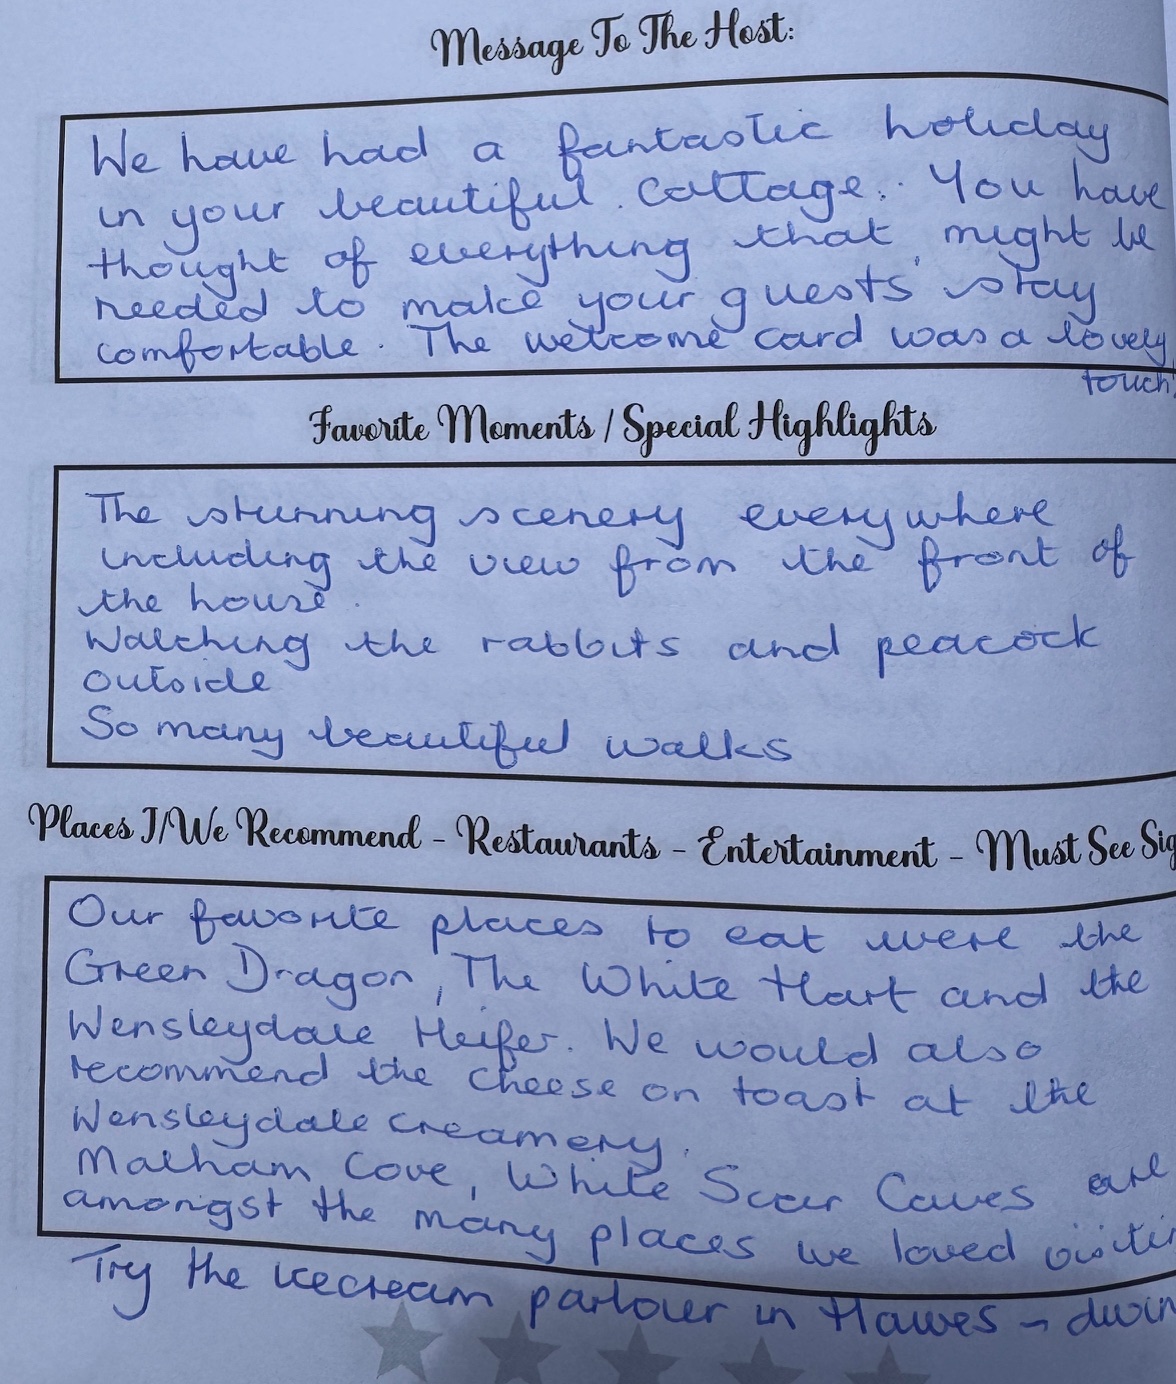 Message To The Host:
We have had a fantastic holiday
in your beautiful cottage. You have
thought of everything that might be
needed to make your guests' stay
comfortable. The welcome card was a lovely
touch
Favorite Moments / Special Highlights
The stunning scenery everywhere
including the view from the front of
the house.
Watching the rabbits and peacock
outside
So many beautiful walks
Places I/We Recommend - Restaurants - Entertainment - Must See Sig
Our favorite places to eat were the
Green Dragon, The White Hart and the
Wensleydale Heifer. We would also
recommend the cheese on toast at the
Wensleydale Creamery.
Malham Cove, White Scar Caves are
amongst the many places we loved visitin
Try the icecream parlour in Hawes - divin